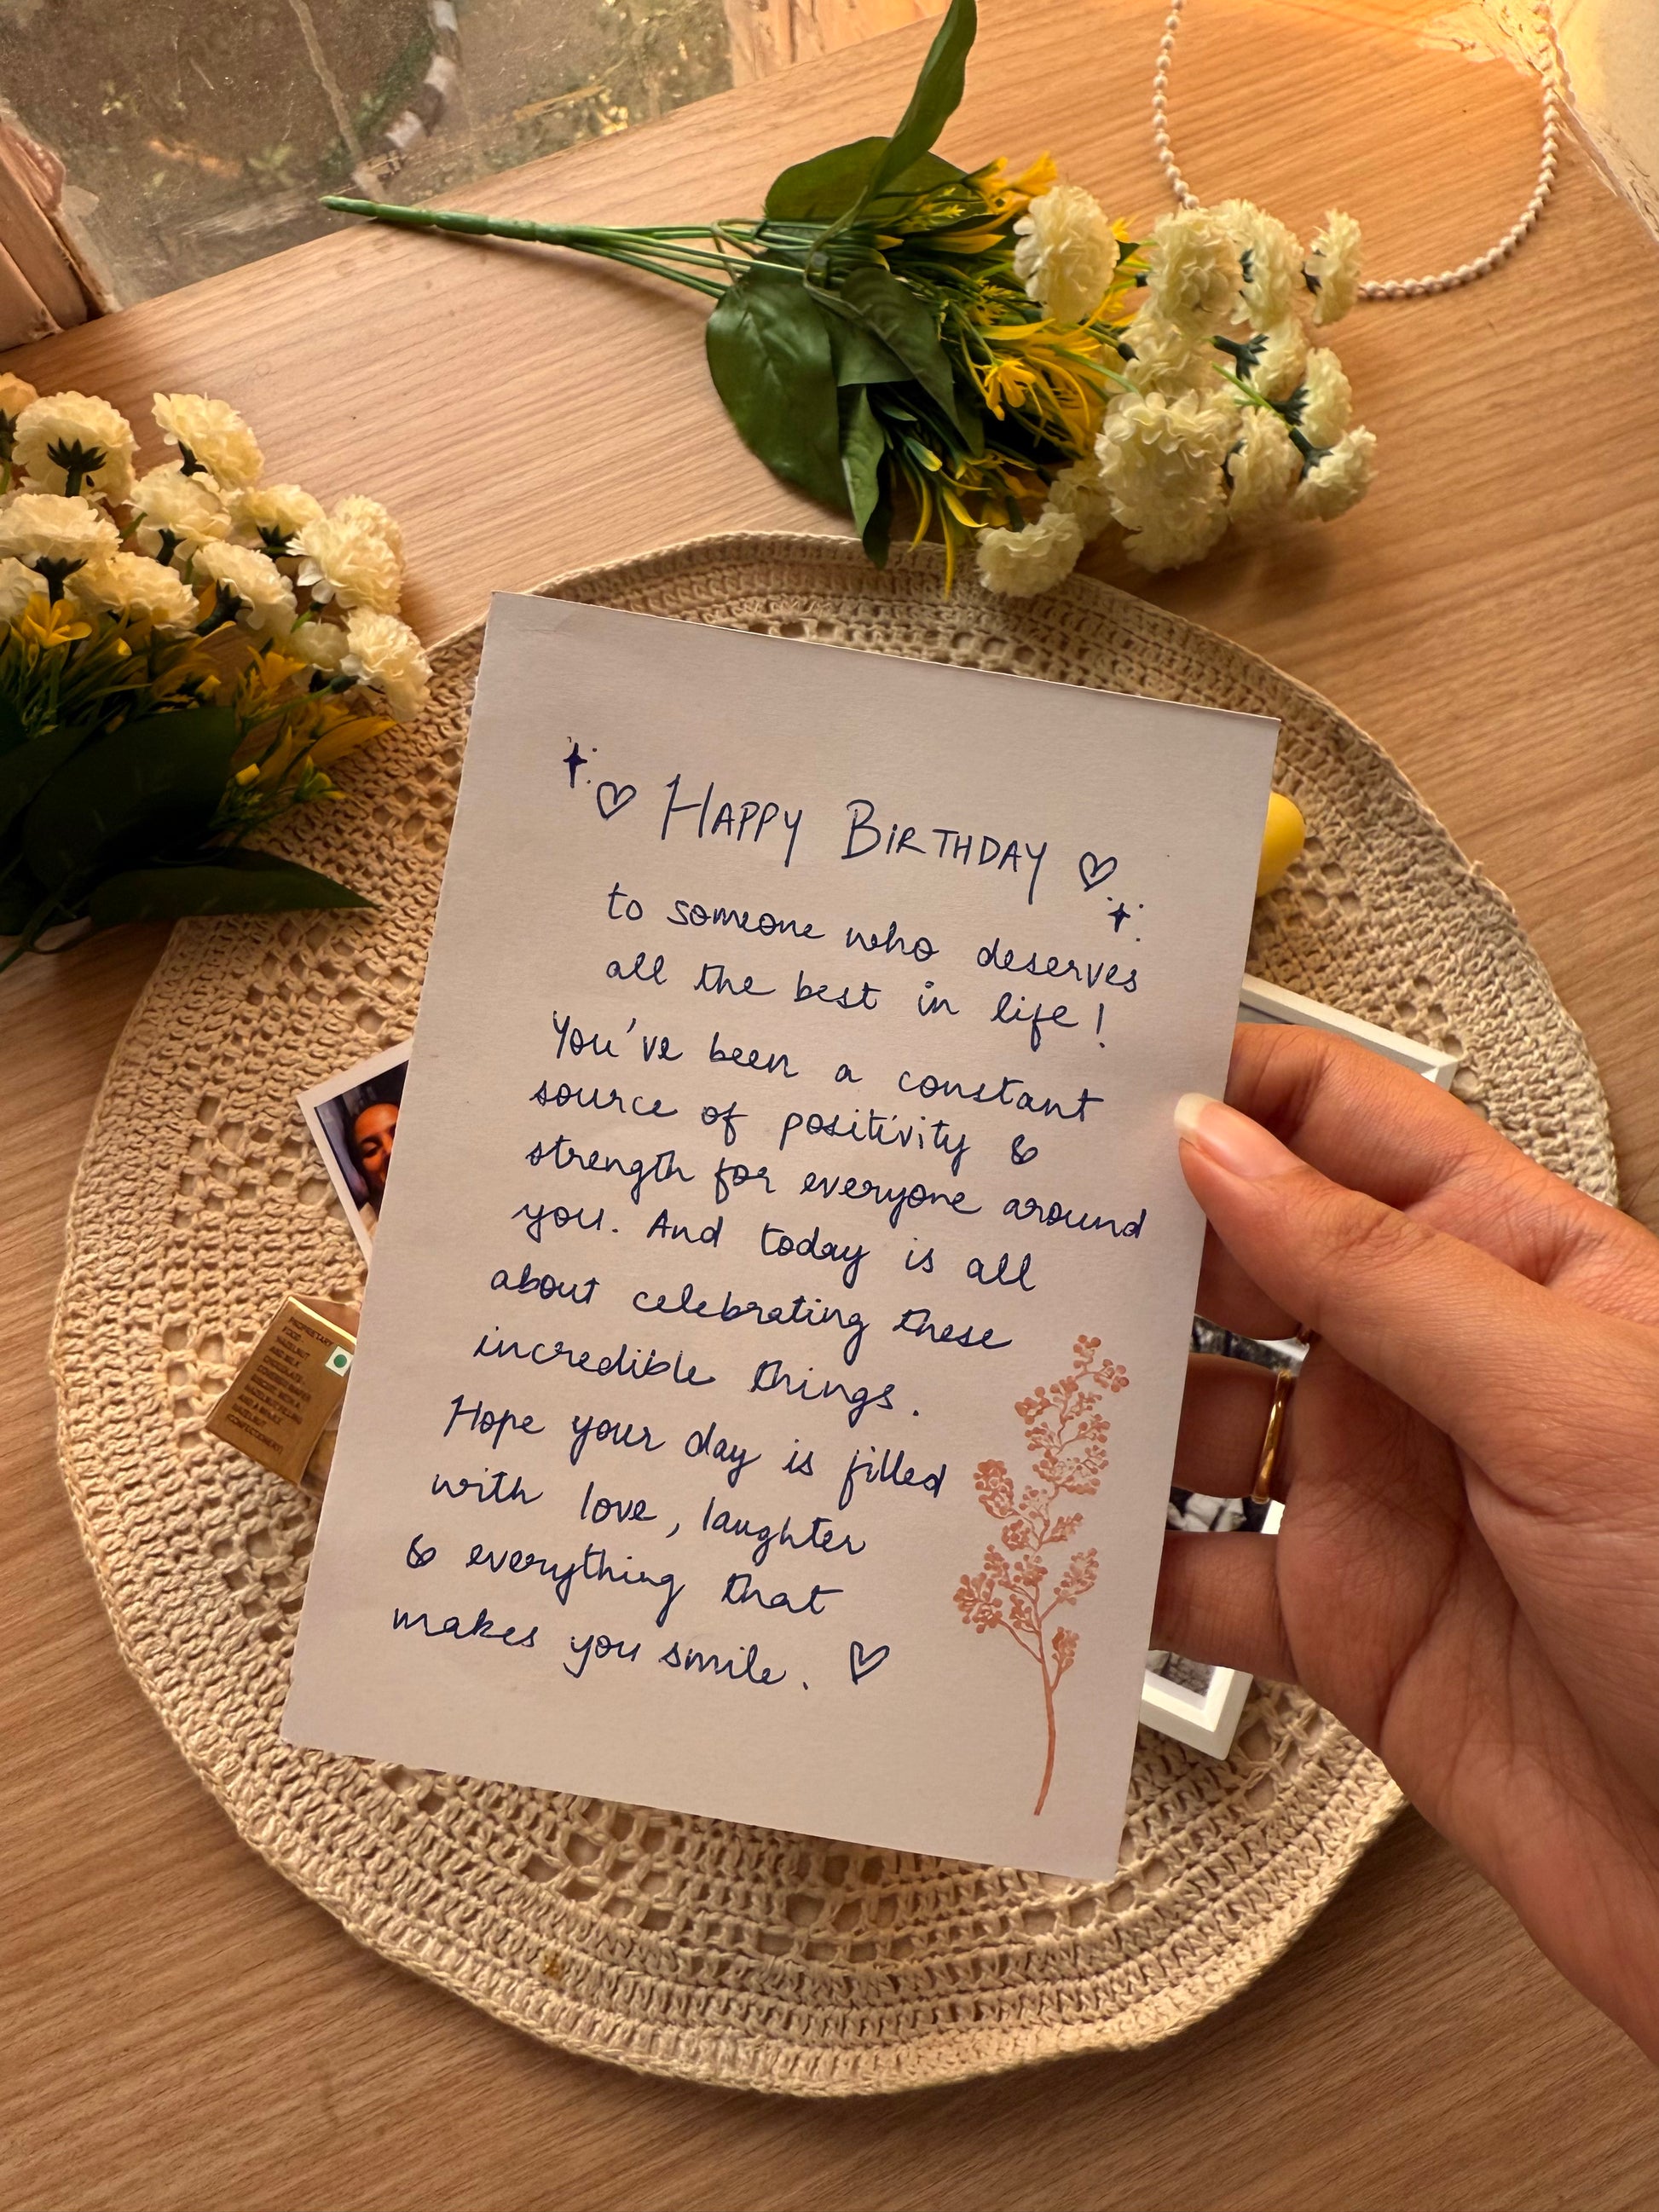 ♡ HAPPY BIRTHDAY ♡
to someone who deserves
all the best in life!
You've been a constant
source of positivity &
strength for everyone around
you. And today is all
about celebrating these
incredible things.
Hope your day is filled
with love, laughter
& everything that
makes you smile. ♡
PROPRIETARY
FOOD
HAZELNUT
AND MILK
CHOCOLATE